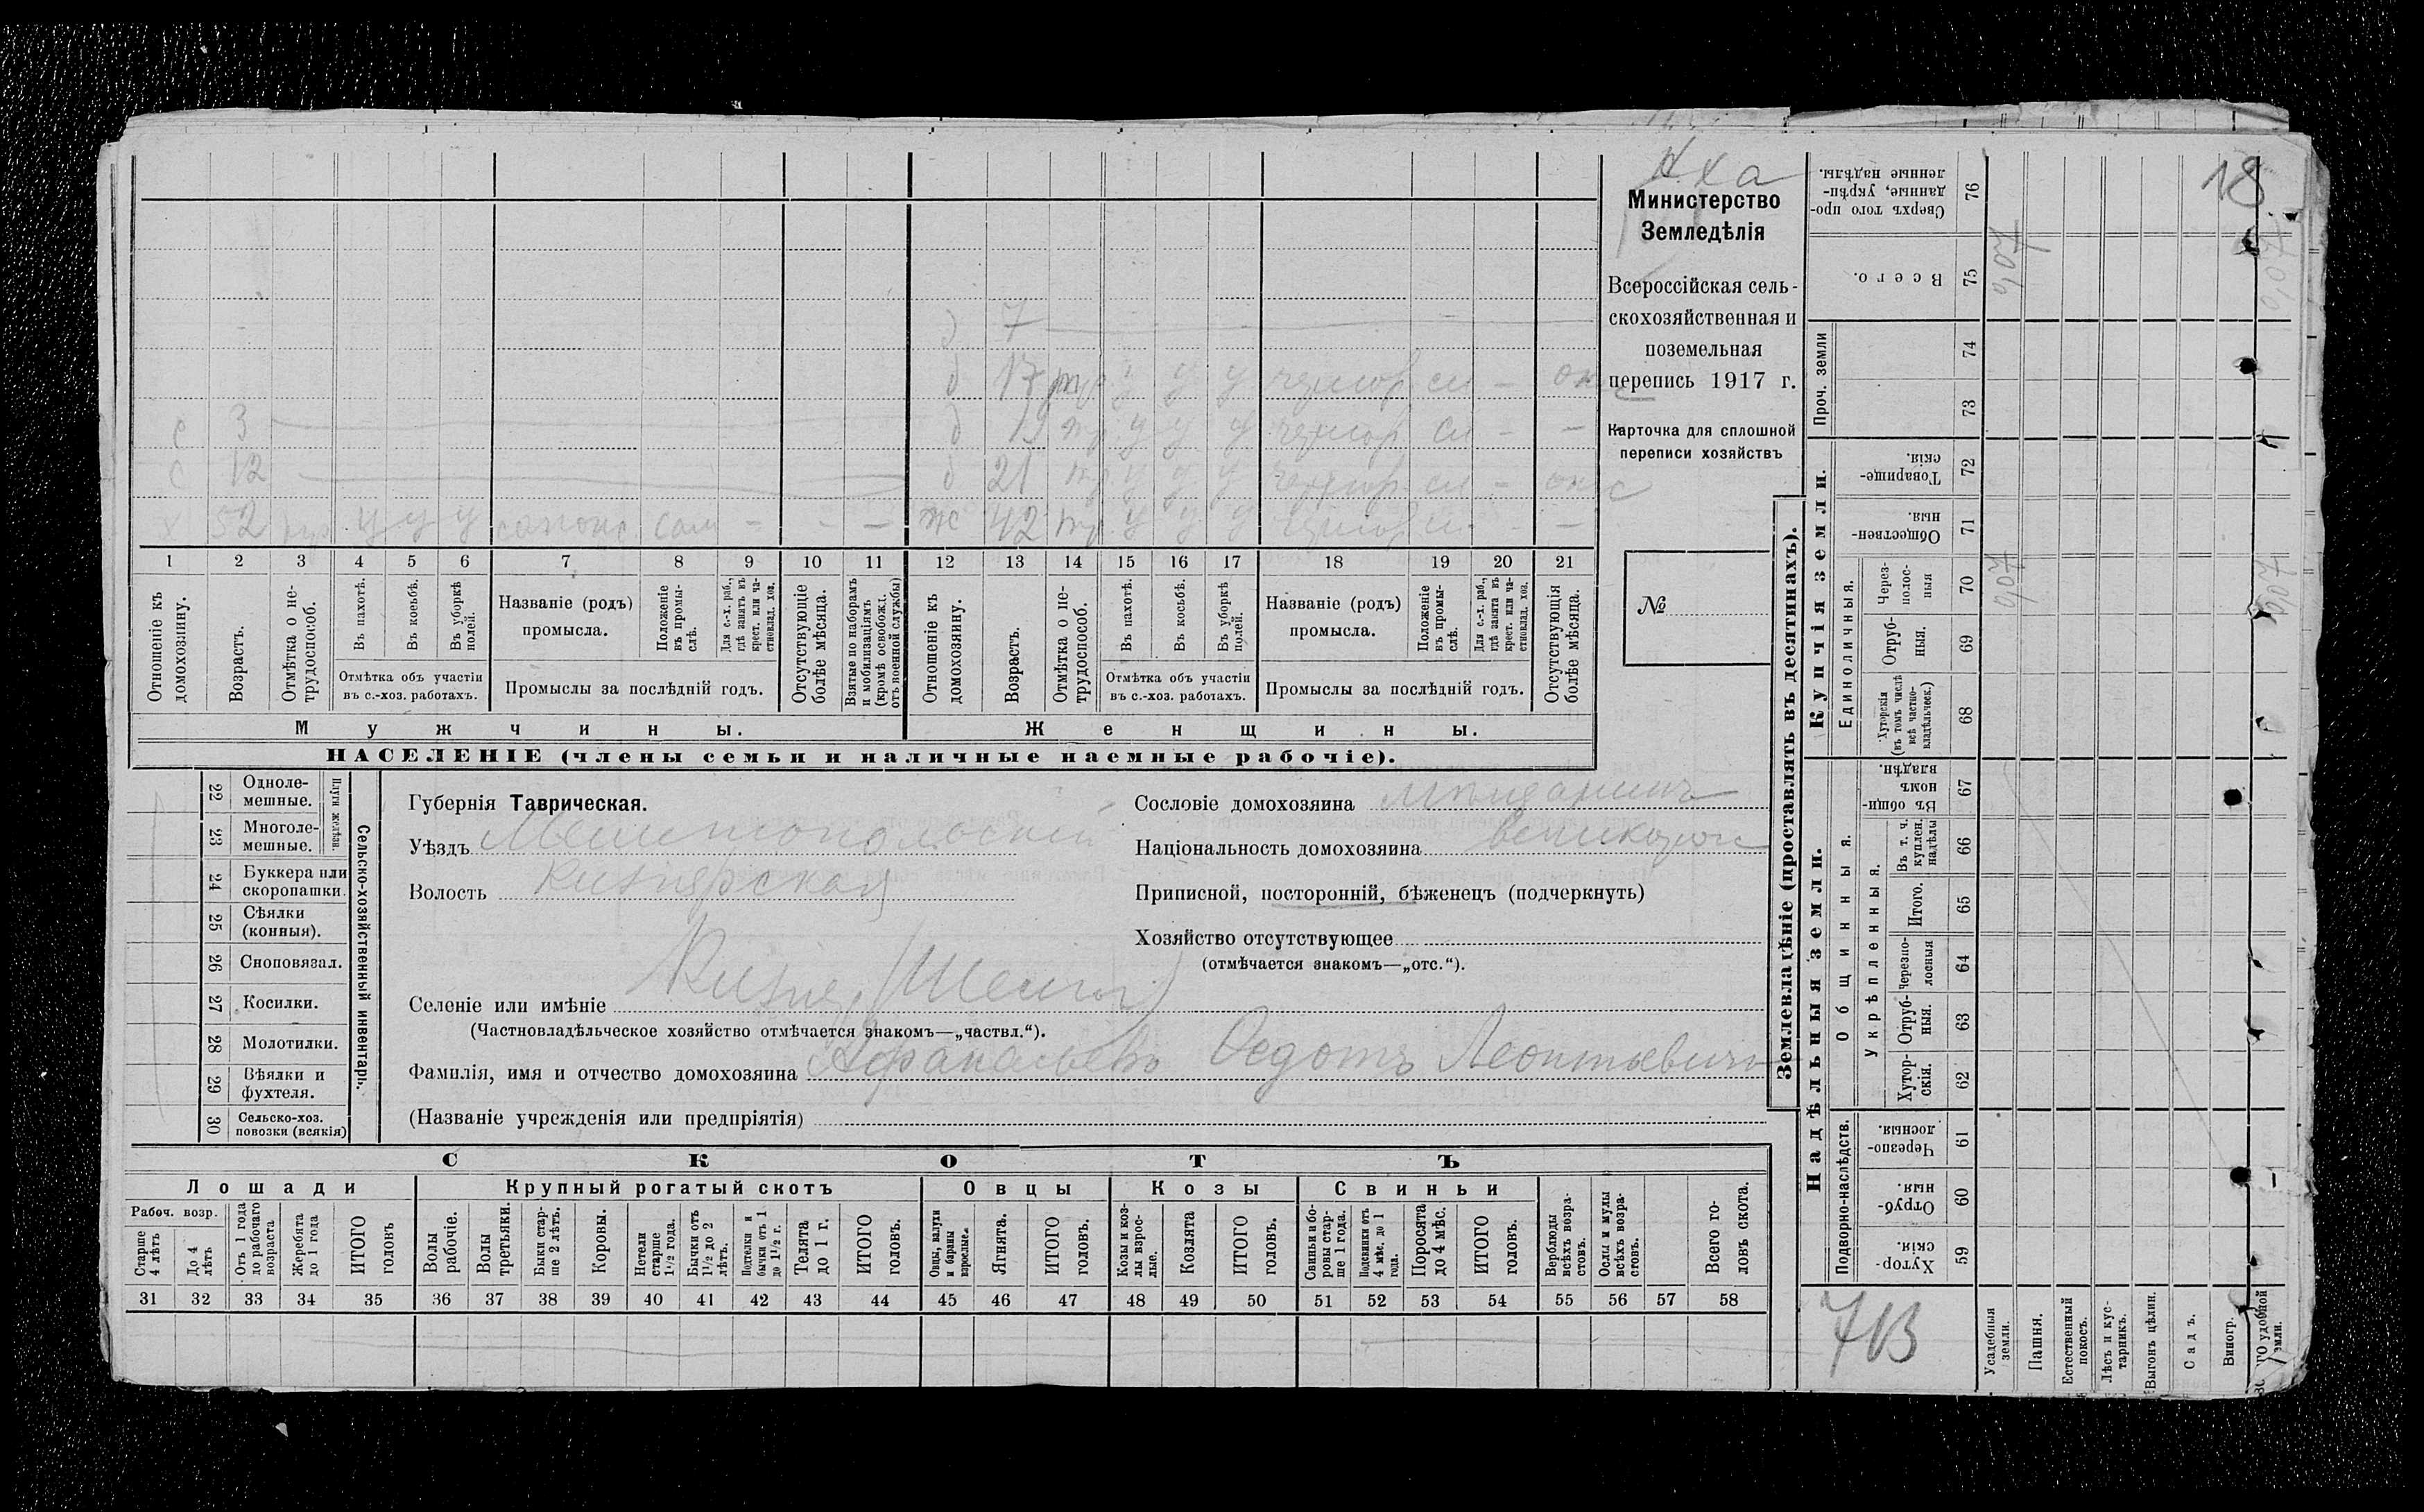 18
Министерство
Земледѣлія
Всероссійская сель-
скохозяйственная и
поземельная
перепись 1917 г.
Карточка для сплошной
переписи хозяйствъ
№
д 7
д 17 тр у у у си -
с 3 д 19 тр у у у си - -
с 12 д 21 тр у у у си -
х 52 тр у у у сапожн. сам - - - ж 42 тр у у у си - -
1 2 3 4 5 6 7 8 9 10 11 12 13 14 15 16 17 18 19 20 21
Отношеніе къ домохозяину.
Возрастъ.
Отмѣтка о не-трудоспособ.
Въ пахотѣ.
Въ косьбѣ.
Въ уборкѣ полей.
Отмѣтка объ участіи
въ с.-хоз. работахъ.
Названіе (родъ)
промысла.
Положеніе въ промы-слѣ.
Для с.-х. раб., гдѣ занятъ въ крест. или ча-стновлад. хоз.
Промыслы за послѣдній годъ.
Отсутствующіе болѣе мѣсяца.
Взятые по наборамъ и мобилизаціямъ (кромѣ освобожд. отъ военной службы)
Отношеніе къ домохозяину.
Возрастъ.
Отмѣтка о не-трудоспособ.
Въ пахотѣ.
Въ косьбѣ.
Въ уборкѣ полей.
Отмѣтка объ участіи
въ с.-хоз. работахъ.
Названіе (родъ)
промысла.
Положеніе въ промы-слѣ.
Для с.-х. раб., гдѣ занята въ крест. или ча-стновлад. хоз.
Промыслы за послѣдній годъ.
Отсутствующія болѣе мѣсяца.
Мужчины. Женщины.
НАСЕЛЕНІЕ (члены семьи и наличные наемные рабочіе).
Сельско-хозяйственный инвентарь.
Плуги желѣзн.
22 Одноле-мешные.
23 Многоле-мешные.
24 Буккера или скоропашки.
25 Сѣялки (конныя).
26 Сноповязал.
27 Косилки.
28 Молотилки.
29 Вѣялки и фухтеля.
30 Сельско-хоз. повозки (всякія)
Губернія Таврическая.
Уѣздъ Мелитопольскій
Волость Кизіярская
Селеніе или имѣніе Кизіяр
(Частновладѣльческое хозяйство отмѣчается знакомъ—„частвл.“).
Фамилія, имя и отчество домохозяина Афанасьевъ Федотъ Леонтьевичъ
(Названіе учрежденія или предпріятія)
Сословіе домохозяина мѣщанинъ
Національность домохозяина великорос
Приписной, посторонній, бѣженецъ (подчеркнуть)
Хозяйство отсутствующее
(отмѣчается знакомъ—„отс.“).
СКОТЪ
Лошади Крупный рогатый скотъ Овцы Козы Свиньи
Рабоч. возр.
Старше 4 лѣтъ
До 4 лѣтъ
Отъ 1 года до рабочаго возраста
Жеребята до 1 года
ИТОГО головъ
Волы рабочіе.
Волы третьяки.
Быки стар-ше 2 лѣтъ.
Коровы.
Нетели старше 1½ года.
Бычки отъ 1½ до 2 лѣтъ.
Подтелки и бычки отъ 1 до 1½ г.
Телята до 1 г.
ИТОГО головъ.
Овцы, валухи и бараны взрослые.
Ягнята.
ИТОГО головъ.
Козы и коз-лы взрос-лые.
Козлята
ИТОГО головъ.
Свиньи и бо-ровы стар-ше 1 года.
Подсвинки отъ 4 мѣс. до 1 года.
Поросята до 4 мѣс.
ИТОГО головъ.
Верблюды всѣхъ возра-стовъ.
Ослы и мулы всѣхъ возра-стовъ.
Всего го-ловъ скота.
31 32 33 34 35 36 37 38 39 40 41 42 43 44 45 46 47 48 49 50 51 52 53 54 55 56 57 58
Землевладѣніе (проставлять въ десятинахъ).
Надѣльныя земли.
Подворно-наслѣдств.
Хутор-скія. 59
Отруб-ныя. 60
Черезпо-лосныя. 61
Общинныя.
Укрѣпленныя.
Хутор-скія. 62
Отруб-ныя. 63
Черезпо-лосныя 64
Итого. 65
Въ т. ч. куплен. надѣлы 66
Въ общин-номъ владѣн. 67
Купчія земли.
Единоличныя.
Хуторскія (въ томъ числѣ всѣ частно-владѣльческ.) 68
Отруб-ныя. 69
Через-полос-ныя 70 0,07
Обществен-ныя. 71
Товарище-скія. 72
Проч. земли
73
74
Всего. 75 0,07
Сверхъ того про-данные, укрѣп-ленные надѣлы. 76
Усадебныя земли.
Пашня.
Естественный покосъ.
Лѣсъ и кус-тарникъ.
Выгонъ цѣлин.
Садъ.
Виногр.
удобной
7В